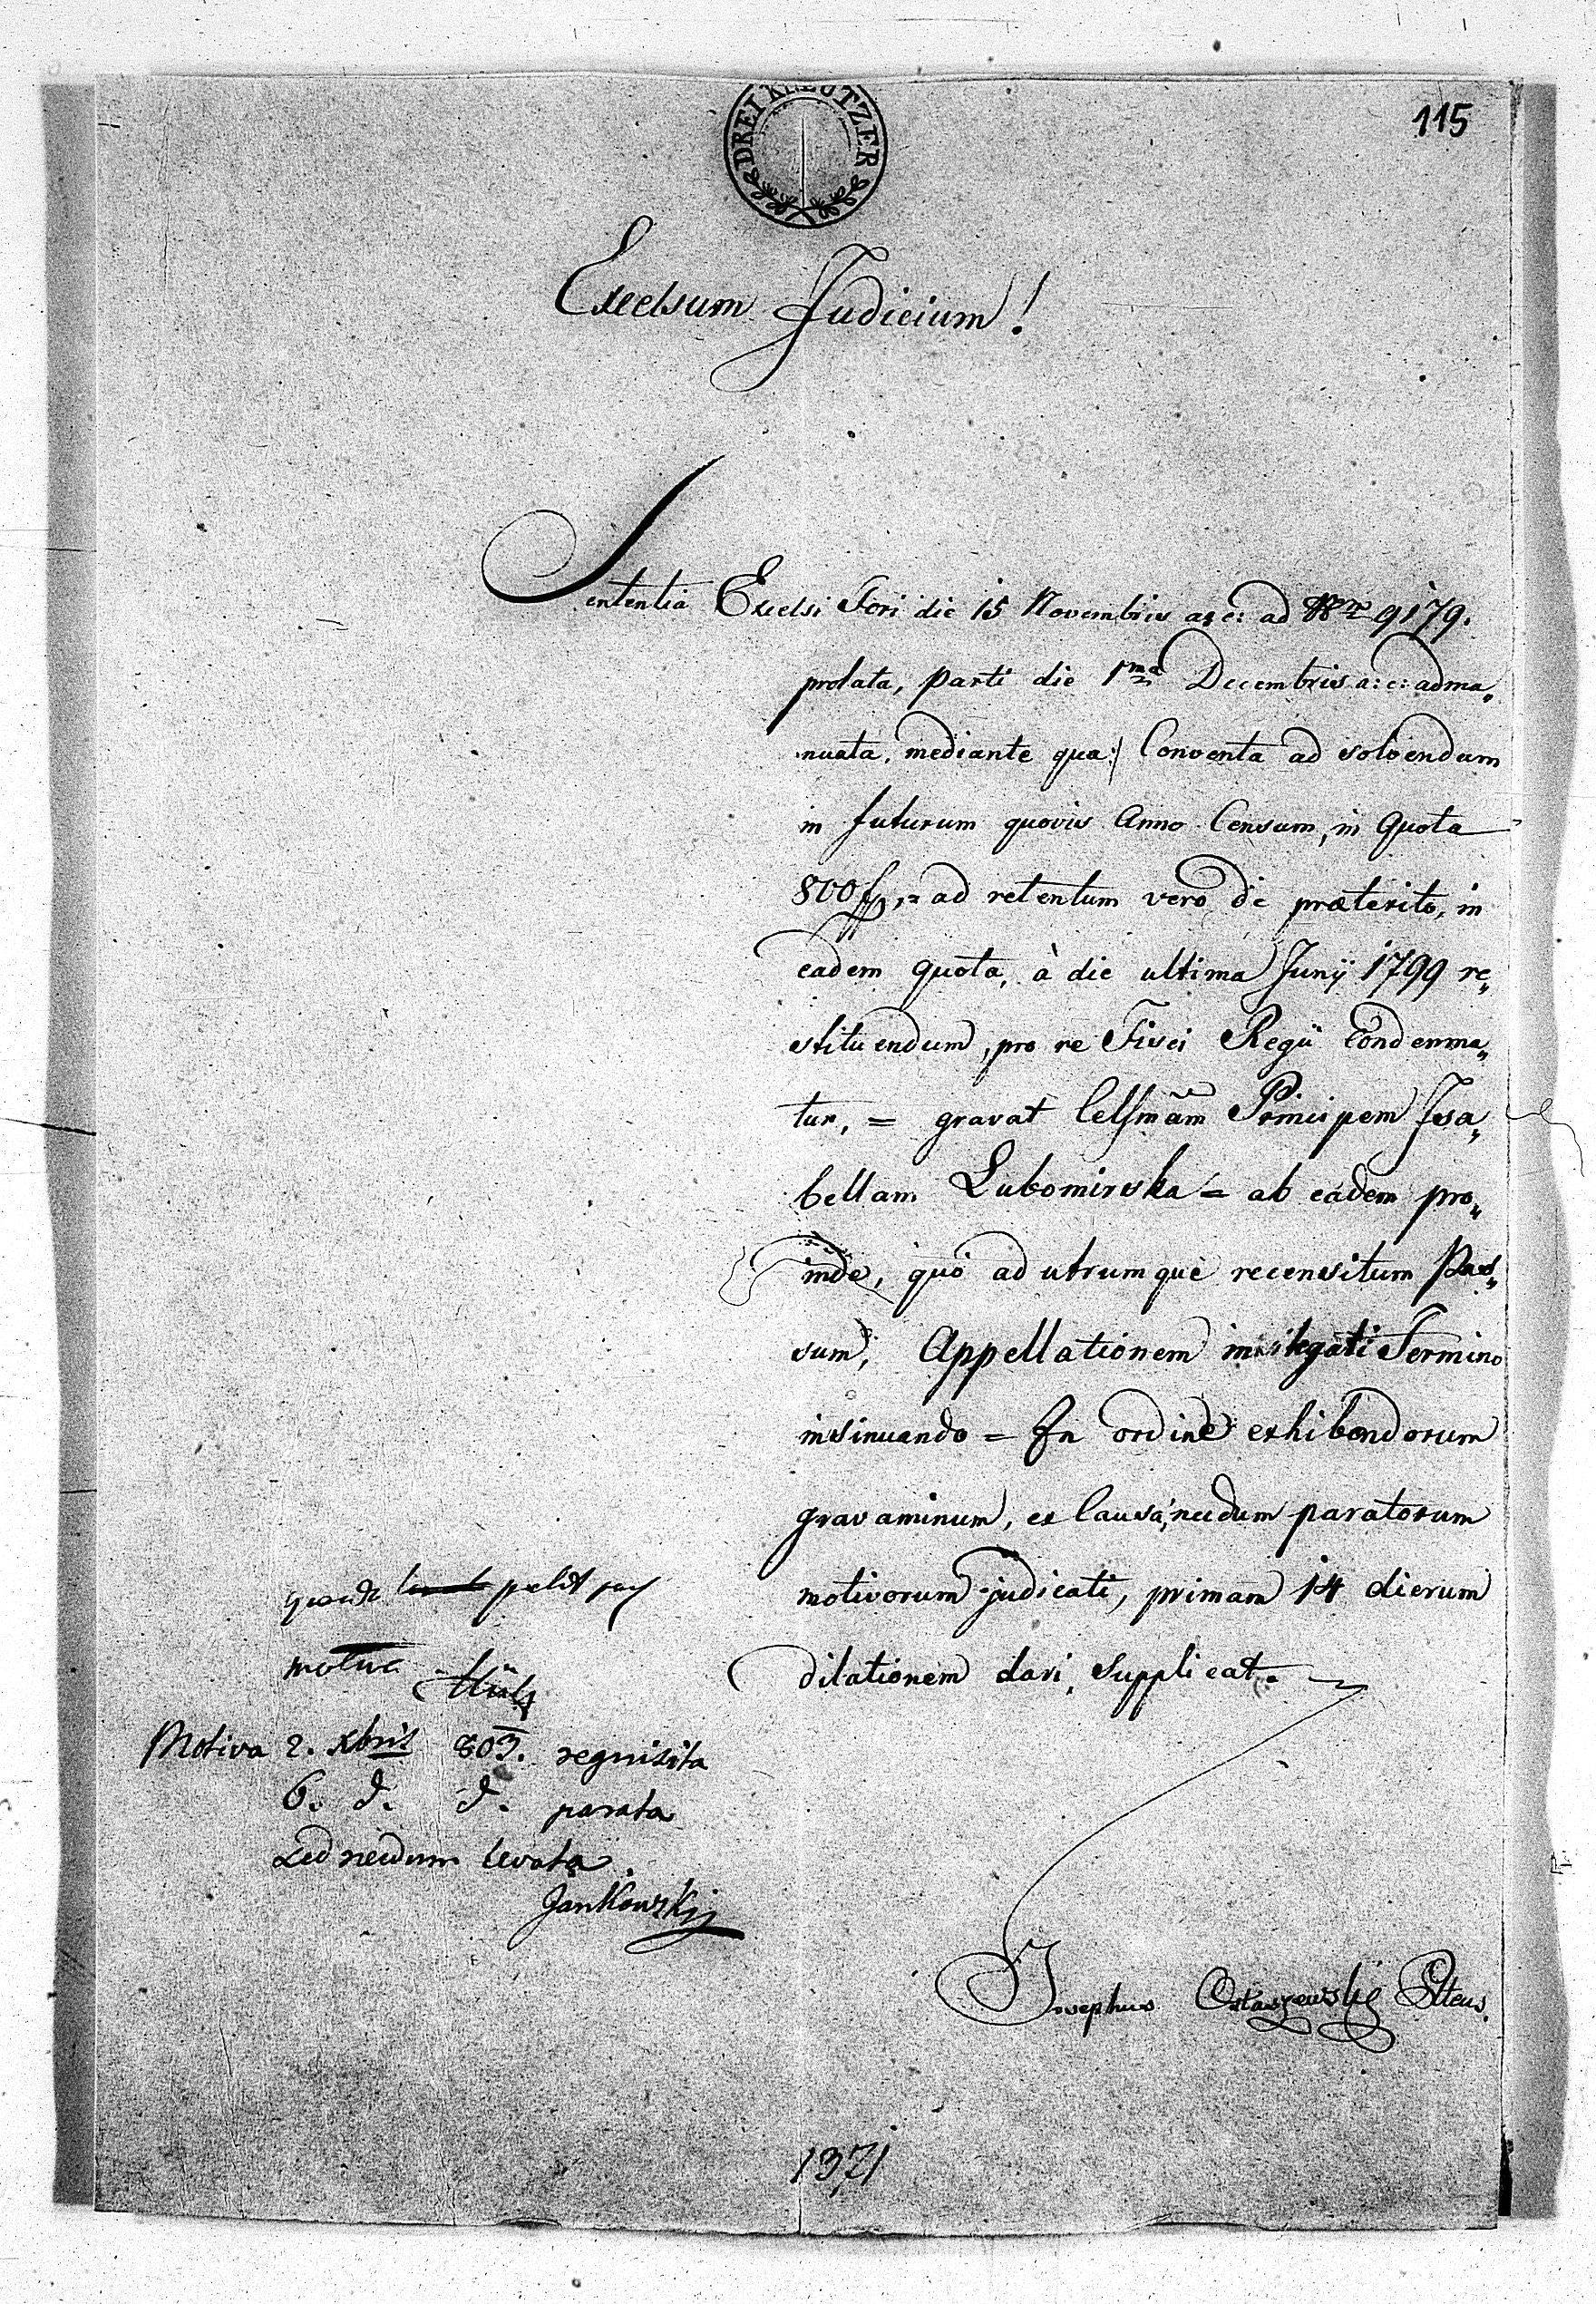 115
DREI KREUTZER
Excelsum Judicium!
Sententia Excelsi Fori die 15 Novembris a: c: ad Nrm 9179.
prolata, parti die 1ma Decembris a: c: adma„
nuata, mediante qua:/ Conventa ad solvendum
in futurum quovis Anno Censum, in Quota
800 fp, = ad retentum vero de præterito, in
eadem quota, à die ultima Junÿ 1799 re„
stituendum, pro re Fisci Regii Condemna„
tur, = gravat Celsmãm Principem Isa„
bellam Lubomirska = ab eadem pro„
inde, quò ad utrumquè recensitum Pas„
sum, Appellationem in legali Termino
insinuando = In ordine exhibendorum
gravaminum, ex Causa, necdum paratorum
motivorum judicati, primam 14 dierum
dilationem dari, supplicat.
Josephus Ostaszewski Pltens.
motiva
Motiva 2. Xbris 803. requisita
6. d. d. parata
Sed necdum levata.
Jankowskij
1371